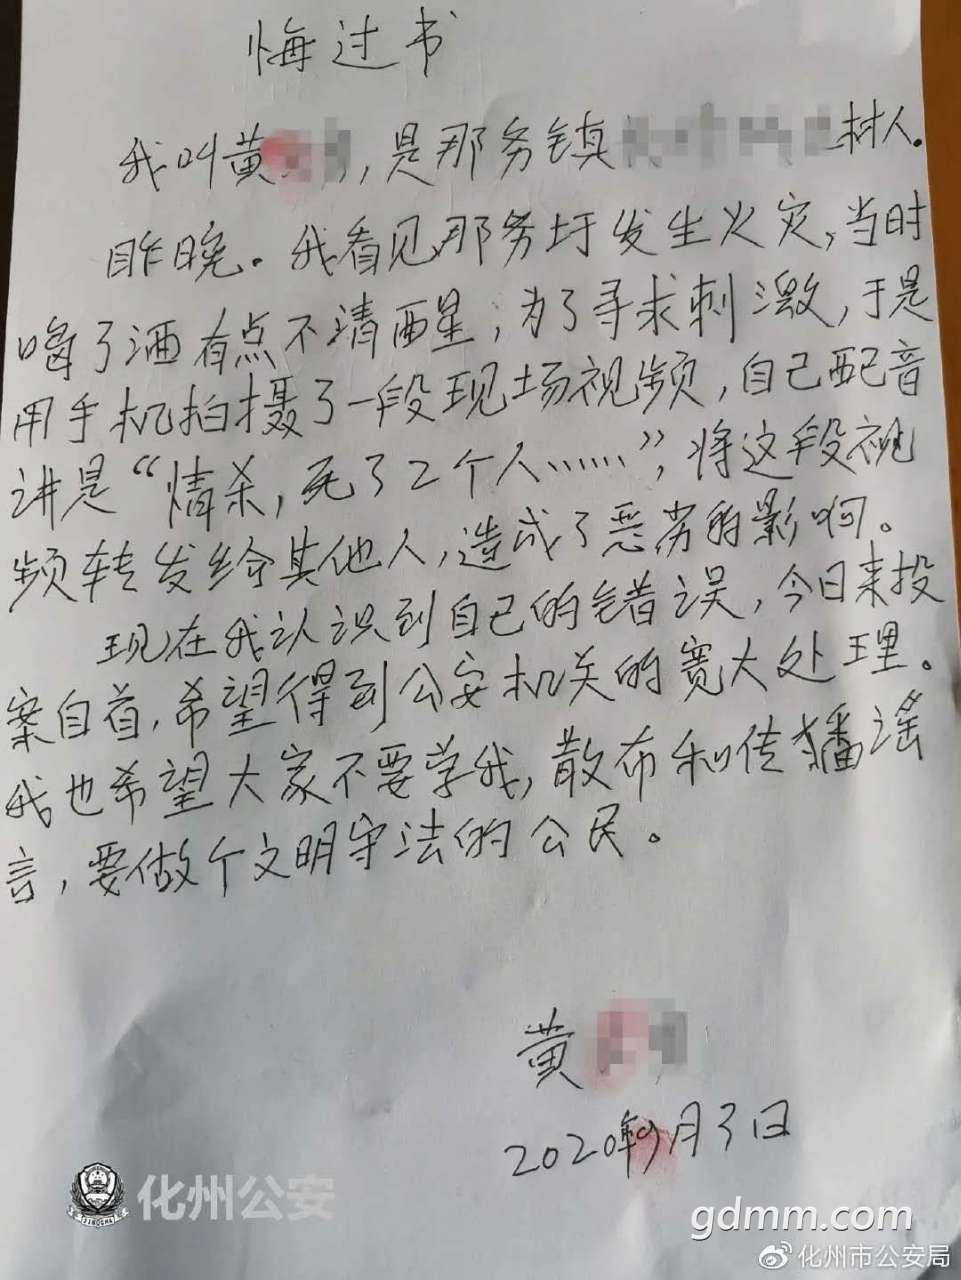 悔过书
我叫黄，是那务镇村人。
昨晚。我看见那务圩发生火灾，当时
喝了酒有点不清醒；为了寻求刺激，于是
用手机拍摄了一段现场视频，自己配音
讲是“情杀，死了2个人……”，将这段视
频转发给其他人，造成了恶劣的影响。
现在我认识到自己的错误，今日来投
案自首，希望得到公安机关的宽大处理。
我也希望大家不要学我，散布和传播谣
言，要做个文明守法的公民。
黄
2020年9月3日
化州公安
gdmm.com
化州市公安局